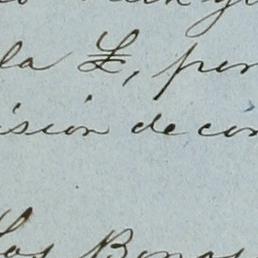 la £, por
isión de con
Los Bonos